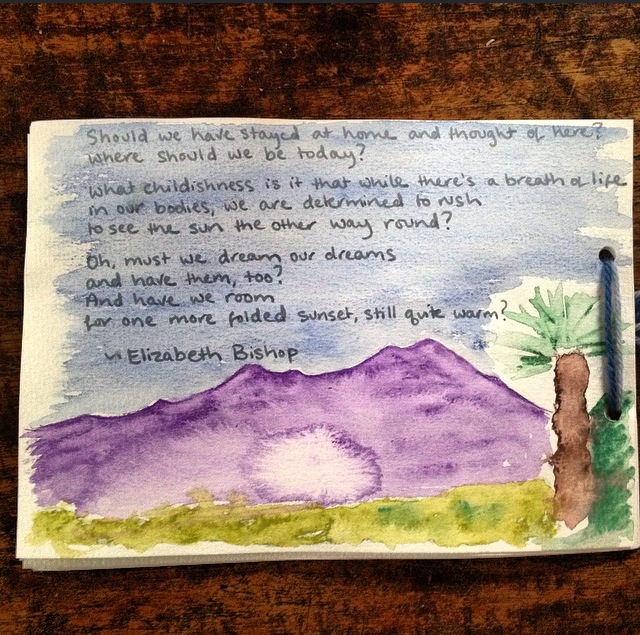 Should we have stayed at home and thought of here?
where should we be today?
What childishness is it that while there's a breath of life
in our bodies, we are determined to rush
to see the sun the other way round?
Oh, must we dream our dreams
and have them, too?
And have we room
for one more folded sunset, still quite warm?
~ Elizabeth Bishop